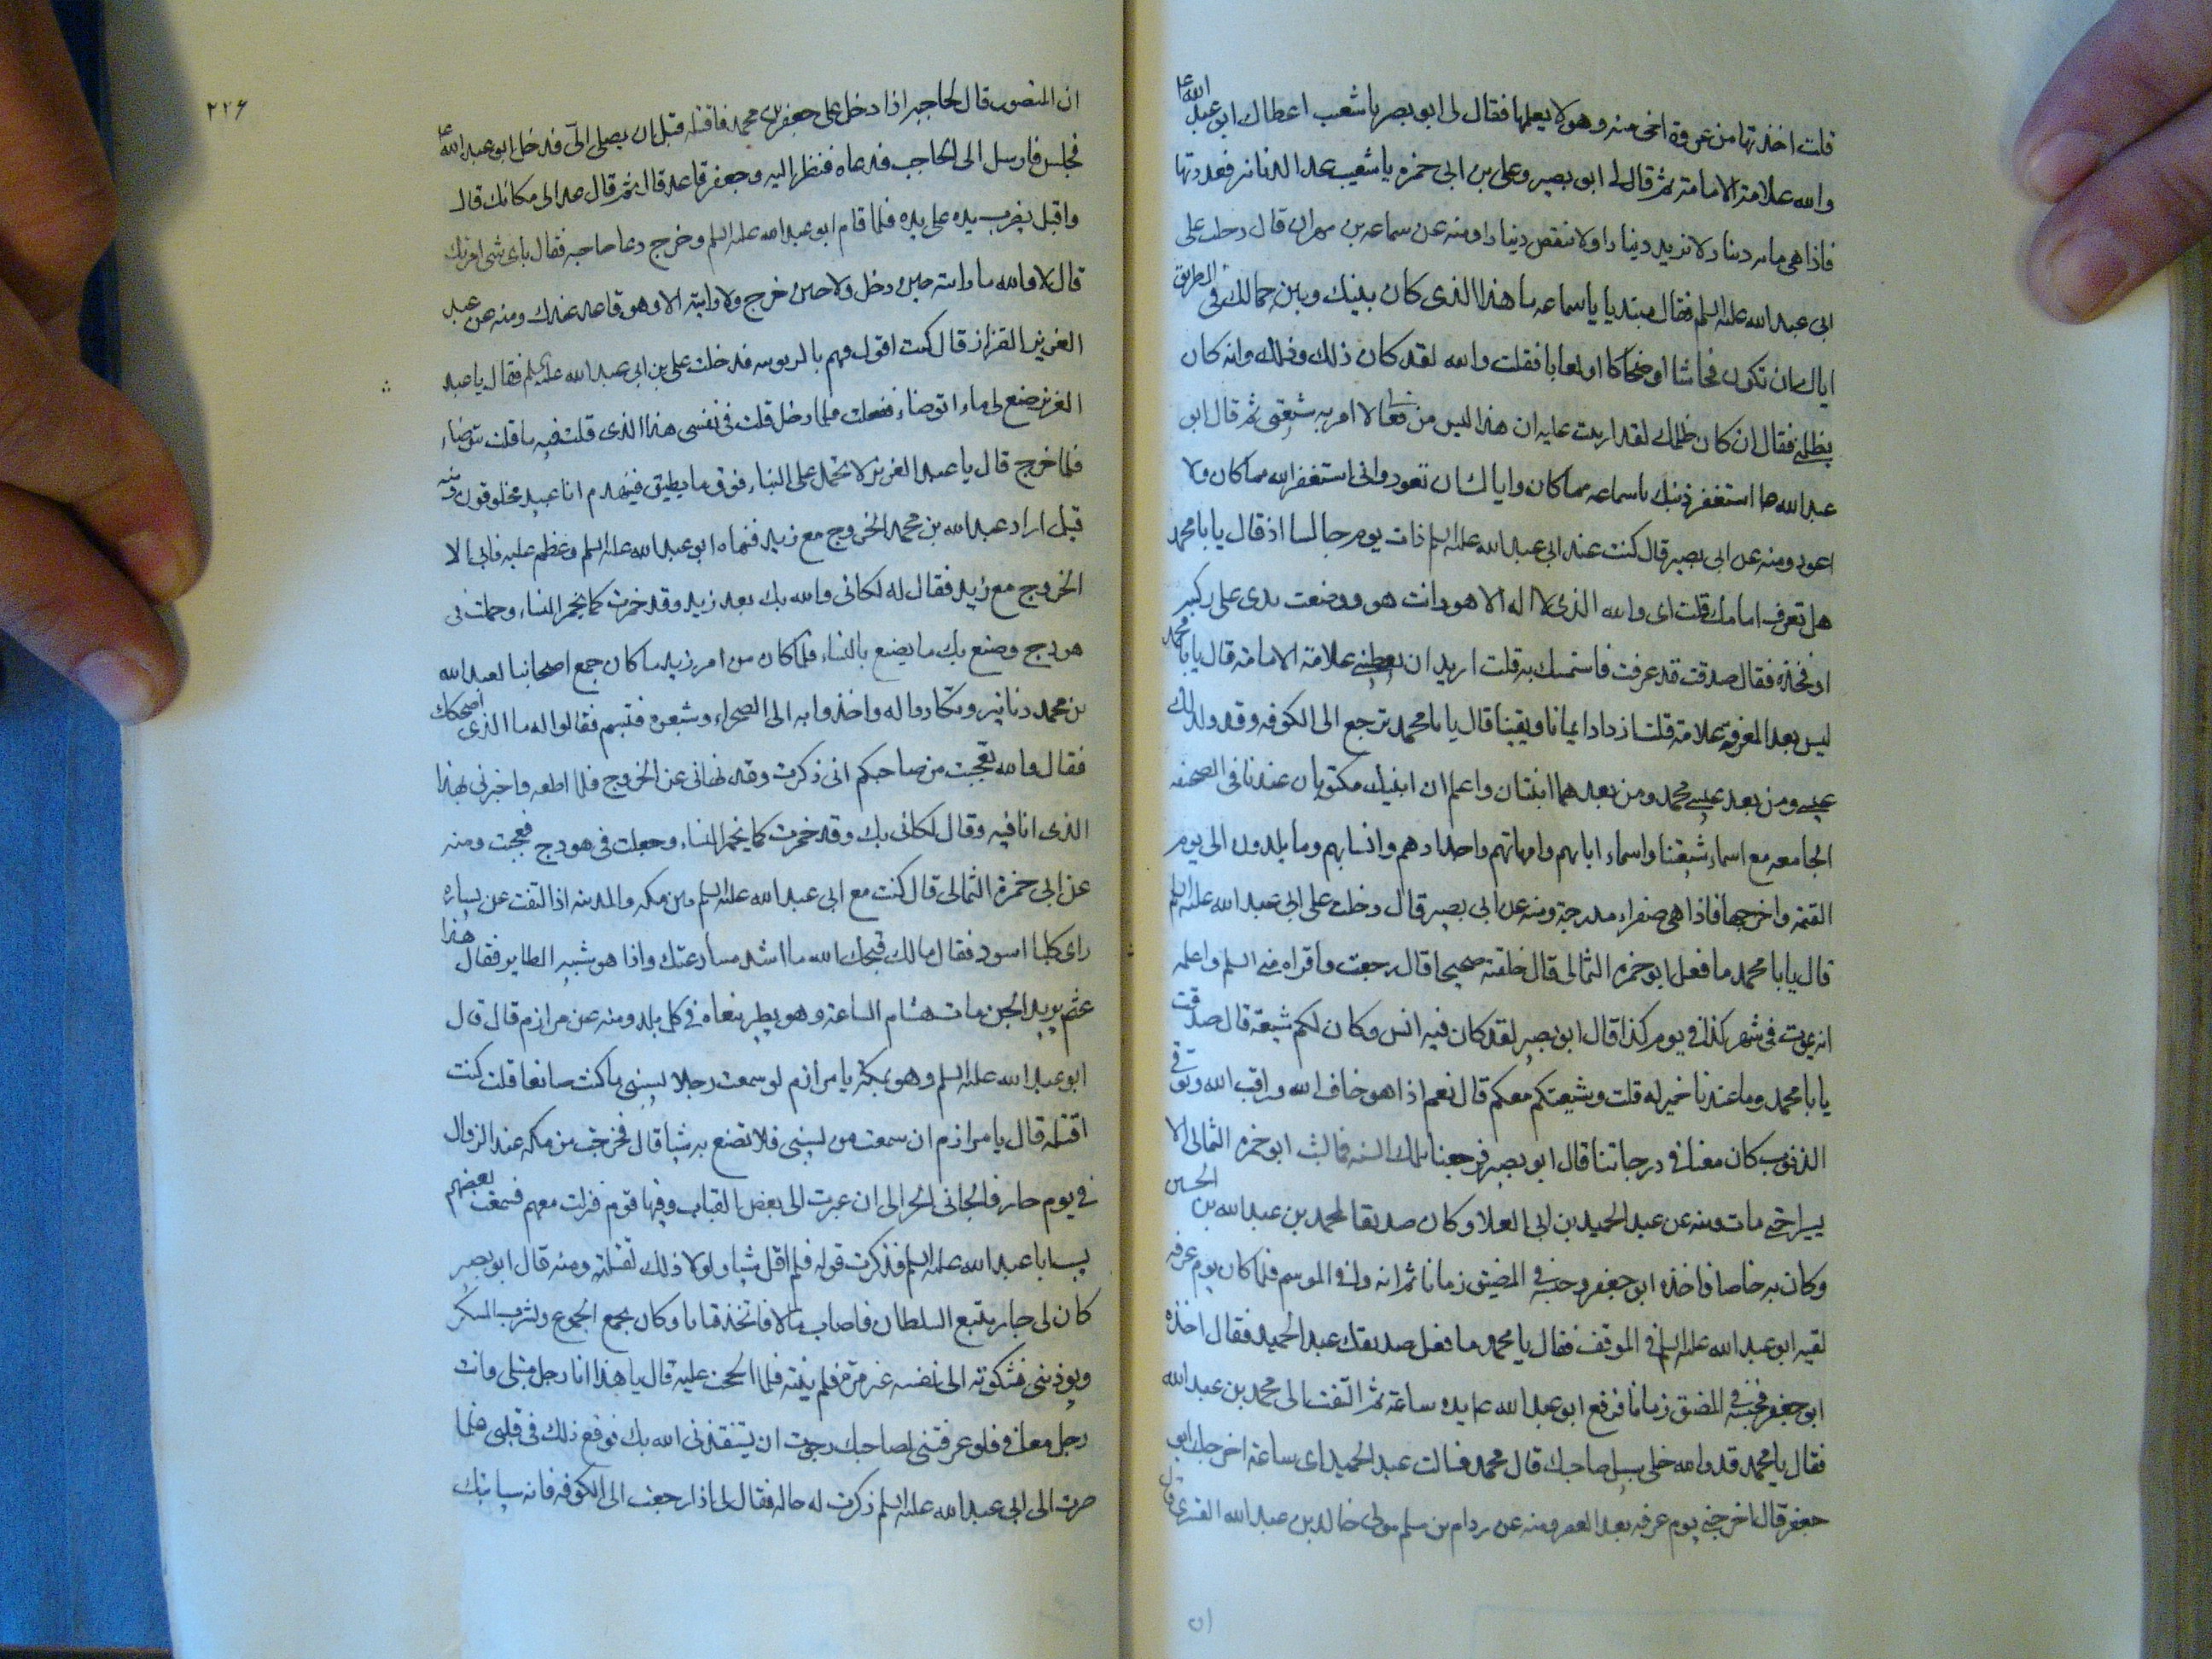 قلت اخذتها من عروة اخى منه وهو لا يعلمها فقال لى ابو بصير يا شعيب اعطاك ابو عبد الله ع
والله علامة الامامة ثم قال لى ابو بصير وعلى بن ابى حمزه يا شعيب عد الدنانير فعددتها
فاذا هى مائه دينار لا تزيد دينارا ولا تنقص دينارا ومنه عن سماعه بن مهران قال دخلت على
ابى عبد الله عليه السلم فقال مبتديا يا سماعه ما هذا الذى كان بينك وبين جمالك فى الطريق
اياك ان تكون فحاشا او ضحاكا او لعابا فقلت والله لقد كان ذلك وذلك وانه كان
يظلمنى فقال ان كان ظلمك لقد اربيت عليه ان هذا ليس من فعالنا لا امر به شيعتى ثم قال ابو
عبد الله ع استغفر ذنبك ياسماعه مما كان واياك ان تعود وانى استغفر الله مما كان ولا
اعود ومنه عن ابى بصير قال كنت عند ابى عبد الله عليه السلم ذات يوم جالسا اذ قال يا با محمد
هل تعرف امامك قلت اى والله الذى لا اله الا هو وانت هو ووضعت يدى على ركبته
او فخذه فقال صدقت قد عرفت فاستمسك به قلت اريد ان تعطينى علامة الامامة قال يا با محمد
ليس بعد المعرفة علامة قلت ازداد ايمانا ويقينا قال يا با محمد ترجع الى الكوفه وقد ولد لك
عيسى ومن بعد عيسى محمد ومن بعدهما ابنتان واعلم ان ابنيك مكتوبان عندنا فى الصحيفه
الجامعه مع اسماء شيعتنا واسماء ابائهم وامهاتهم واجدادهم وانسابهم وما يلدون الى يوم
القيمة واخرجها فاذا هى صفراء مدرجة ومنه عن ابى بصير قال دخلت على ابى عبد الله عليه السلم
قال يا با محمد ما فعل ابو حمزه الثمالى قال خلفته صحيحا قال رجعت فاقراه منى السلم واعلمه
انه يموت فى شهر كذا فى يوم كذا قال ابو بصير لقد كان فيه انس وكان لكم شيعة قال صدقت
يا با محمد وما عندنا خير له قلت وشيعتكم معكم قال نعم اذا هو خاف الله وراقب الله وتوقى
الذنوب كان معنا فى درجاتنا قال ابو بصير فرجعنا تلك السنه فما لبث ابو حمزه الثمالى الا
يسيرا حتى مات ومنه عن عبد الحميد بن ابى العلا وكان صديقا لمحمد بن عبد الله بن الحسين
وكان به خاصا فاخذه ابو جعفر وحبسه فى المضيق زمانا ثم انه وافى الموسم فلما كان يوم عرفه
لقيه ابو عبد الله عليه السلم فى الموقف فقال يا محمد ما فعل صديقك عبد الحميد فقال اخذه
ابو جعفر فحبسه فى المضيق زمانا فرفع ابو عبد الله ع يده ساعة ثم التفت الى محمد بن عبد الله
فقال يا محمد قد والله خلى سبيل صاحبك قال محمد فسالت عبد الحميد اى ساعة اخرجك ابو
جعفر قال اخرجنى يوم عرفه بعد العصر ومنه عن رزام بن مسلم مولى خالد بن عبد الله القسرى قال
ان
٢٢۶
ان المنصور قال لحاجبه اذا دخل على جعفر بن محمد فاقتله قبل ان يصل الى فدخل ابو عبد الله ع
فجلس فارسل الى الحاجب فدعاه فنظر اليه وجعفر قاعد قال ثم قال عد الى مكانك قال
واقبل يضرب يده على يده فلما قام ابو عبد الله عليه السلم وخرج دعا حاجبه فقال باى شى امرتك
قال لا والله ما رايته حين دخل ولا حين خرج ولا رايته الا وهو قاعد عندك ومنه عن عبد
العزيز القزاز قال كنت اقول فيهم بالربوبيه فدخلت على بن ابى عبد الله عليه السلم فقال يا عبد
العزيز ضع لى ماء اتوضاء ففعلت فلما دخل قلت فى نفسى هذا الذى قلت فيه ما قلت يتوضاء
فلما خرج قال يا عبد العزيز لا تحمل على البناء فوق ما يطيق فينهدم انا عبيد مخلوقون ومنه
قيل اراد عبد الله بن محمد الخروج مع زيد فنهاه ابو عبد الله عليه السلم وعظم عليه فابى الا
الخروج مع زيد فقال له لكانى والله بك بعد زيد وقد خمرت كما يخمر النساء وحملت فى
هودج وصنع بك ما يصنع بالنساء فلما كان من امر زيد ما كان جمع اصحابنا لعبد الله
بن محمد دنانير وتكاروا له واخذوا به الى الصحراء وشيعوه فتبسم فقالوا له ما الذى اضحكك
فقال والله تعجبت من صاحبكم انى ذكرت وقد نهانى عن الخروج فلم اطعه واخبرنى بهذا
الذى انا فيه وقال لكانى بك وقد خمرت كما يخمر النساء وجعلت فى هودج فعجبت ومنه
عن ابى حمزة الثمالى قال كنت مع ابى عبد الله عليه السلم بين مكه والمدينه اذا التفت عن يساره
راى كلبا اسود فقال مالك قبحك الله ما اشد مسارعتك واذا هو شبه الطاير فقال هذا
عثم بريد الجن مات هشام الساعة وهو يطير ينعاه فى كل بلد ومنه عن مرازم قال قال
ابو عبد الله عليه السلم وهو بمكة يا مرازم لو سمعت رجلا يسبنى ما كنت صانعا قلت كنت
اقتله قال يا مرازم ان سمعت من يسبنى فلا تصنع به شيا قال فخرجت من مكه عند الزوال
فى يوم حار فالجانى الحر الى ان عبرت الى بعض القباب وفيها قوم فنزلت معهم فسمعت بعضهم
يسب ابا عبد الله عليه السلم فذكرت قوله فلم اقل شيا ولولا ذلك لقتلته ومنه قال ابو بصير
كان لى جار يتبع السلطان فاصاب مالا فاتخذ قيانا وكان يجمع الجموع ويشرب المسكر
ويوذينى فشكوته الى نفسه غير مرة فلم ينته فلما الححت عليه قال يا هذا انا رجل مبتلى وانت
رجل معافى فلو عرفتنى لصاحبك رجوت ان يستنقذنى الله بك فوقع ذلك فى قلبى فلما
صرت الى ابى عبد الله عليه السلم ذكرت له حاله فقال لى اذا رجعت الى الكوفه فانه سياتيك